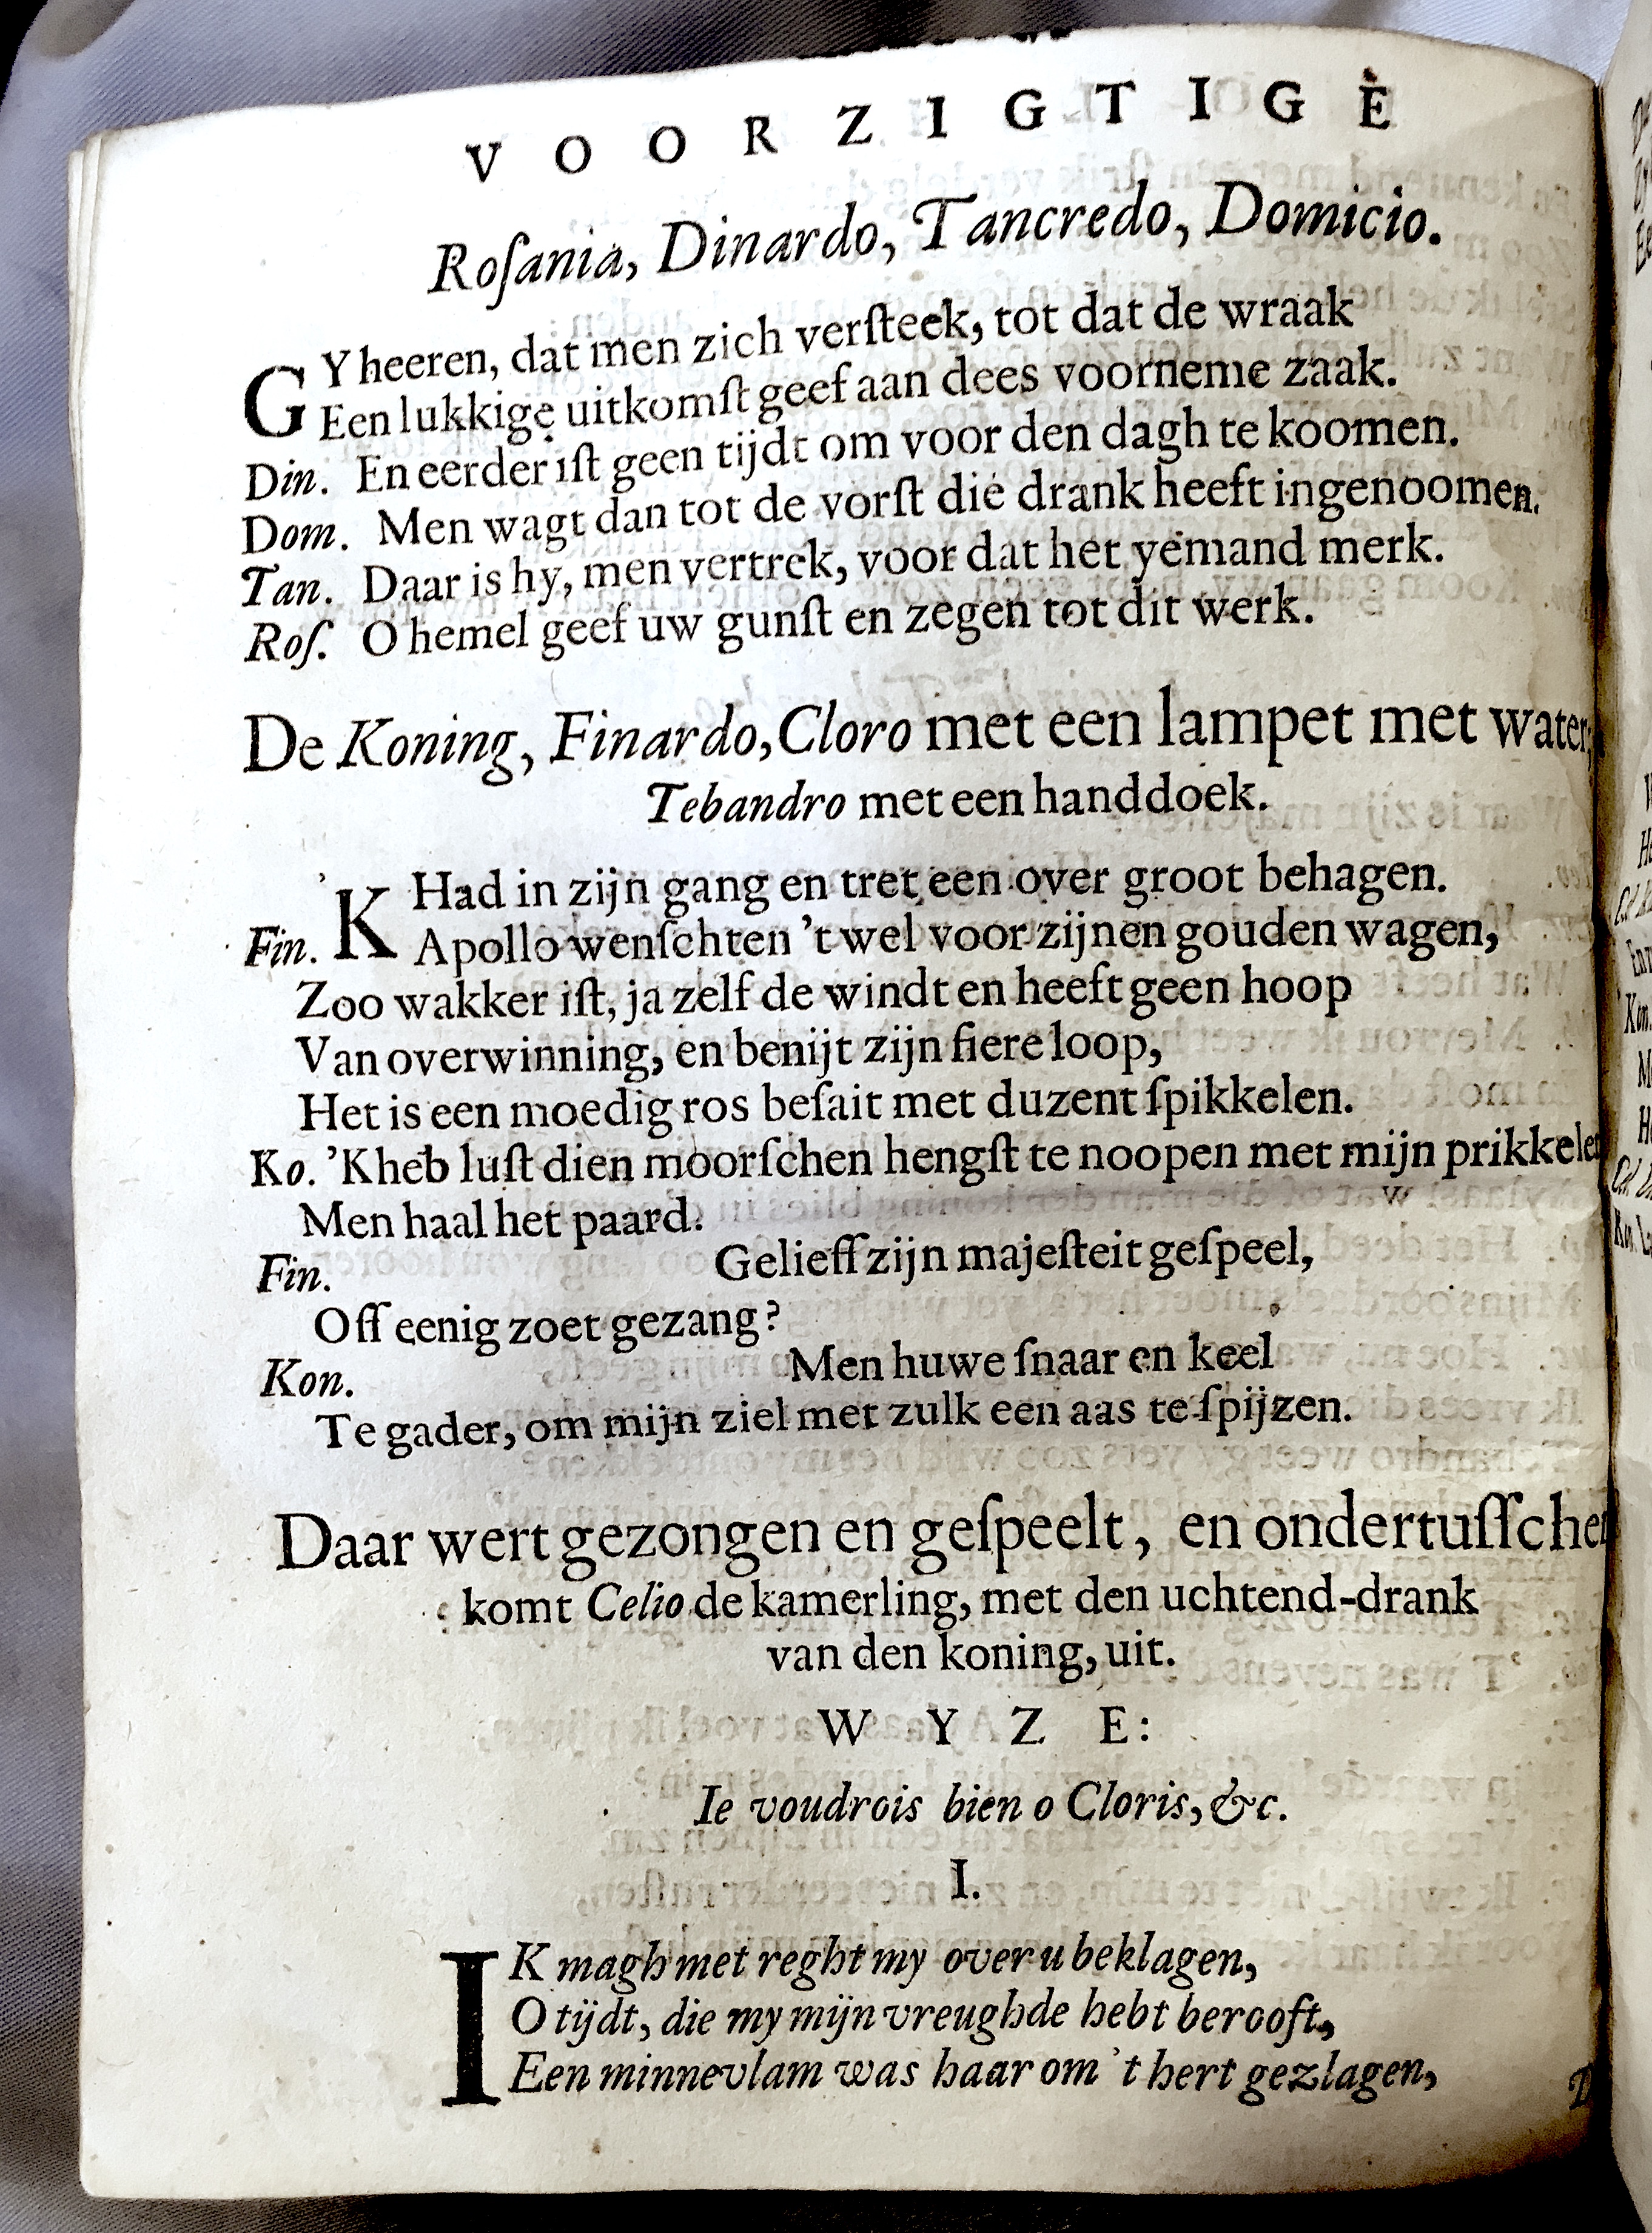 VOORZIGTIGE
Roſania, Dinardo, Tancredo, Domicio.
GY heeren, dat men zich verſteek, tot dat de wraak
Een lukkige uitkomſt geef aan dees voorneme zaak.
Din. En eerder iſt geen tijdt om voor den dagh te koomen.
Dom. Men wagt dan tot de vorſt die drank heeft ingenoomen.
Tan. Daar is hy, men vertrek, voor dat het yemand merk.
Roſ. O hemel geef uw gunſt en zegen tot dit werk.
De Koning, Finardo, Cloro met een lampet met water,
Tebandro met een handdoek.
'K Had in zijn gang en tret een over groot behagen.
Fin. Apollo wenſchten 't wel voor zijnen gouden wagen,
Zoo wakker iſt, ja zelf de windt en heeft geen hoop
Van overwinning, en benijt zijn fiere loop,
Het is een moedig ros beſait met duzent ſpikkelen.
Ko. 'K heb luſt dien moorſchen hengſt te noopen met mijn prikkelen
Men haal het paard.
Fin. Gelieff zijn majeſteit geſpeel,
Off eenig zoet gezang?
Kon. Men huwe ſnaar en keel
Te gader, om mijn ziel met zulk een aas te ſpijzen.
Daar wert gezongen en geſpeelt, en ondertuſſchen
komt Celio de kamerling, met den uchtend-drank
van den koning, uit.
WYZE:
Ie voudrois bien o Cloris, &c.
I.
IK magh met reght my over u beklagen,
O tijdt, die my mijn vreughde hebt berooft,
Een minnevlam was haar om 't hert gezlagen,